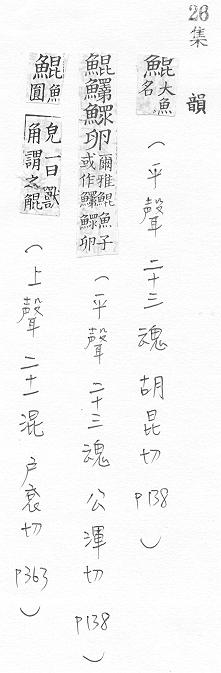 28 集韻
鯤 大魚名 （平聲 二十三魂 胡昆切 P138）
鯤鱞鰥卵 爾雅鯤魚子或作鱞鰥卵 （平聲 二十三魂 公渾切 P138）
鯤 魚圓 皃一曰獸角謂之 （上聲 二十一混 戶袞切 P363）